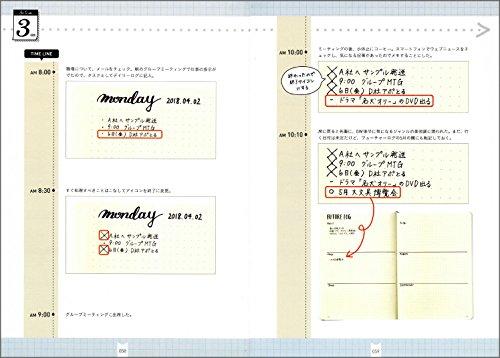 3
TIME LINE
AM 8:00
職場について、メールをチェック。朝のグループミーティングで仕事の指示が
でたので、タスクとしてデイリーログに記入。
monday 2018.04.02
・A社へサンプル発送
・9:00 グループMTG
・6日(金) D社アポとる
AM 8:30
すぐ処理すべきことはこなしてアイコンを終了に変更。
monday 2018.04.02
A社へサンプル発送
・9:00 グループMTG
6日(金) D社アポとる
AM 9:00
グループミーティングに出席した。
058
AM 10:00
ミーティングの後、小休止にコーヒー。スマートフォンでウェブニュースをチ
ェックし、気になる記事があったのでメモをすることにした。
終わったので
終了アイコン
にする
A社へサンプル発送
9:00 グループMTG
6日(金) D社アポとる
- ドラマ「名犬オリー」のDVD出る
AM 10:10
A社へサンプル発送
9:00 グループMTG
6日(金) D社アポとる
- ドラマ「名犬オリー」のDVD出る
○ 5月 大文具博覧会
FUTURE LOG
059